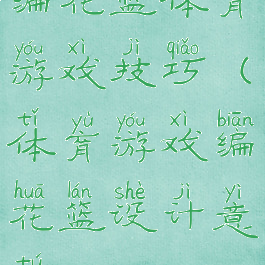 编花篮体育
yóu xì jì qiǎo
游戏技巧（
tǐ yù yóu xì biān
体育游戏编
huā lán shè jì yì
花篮设计意
tú